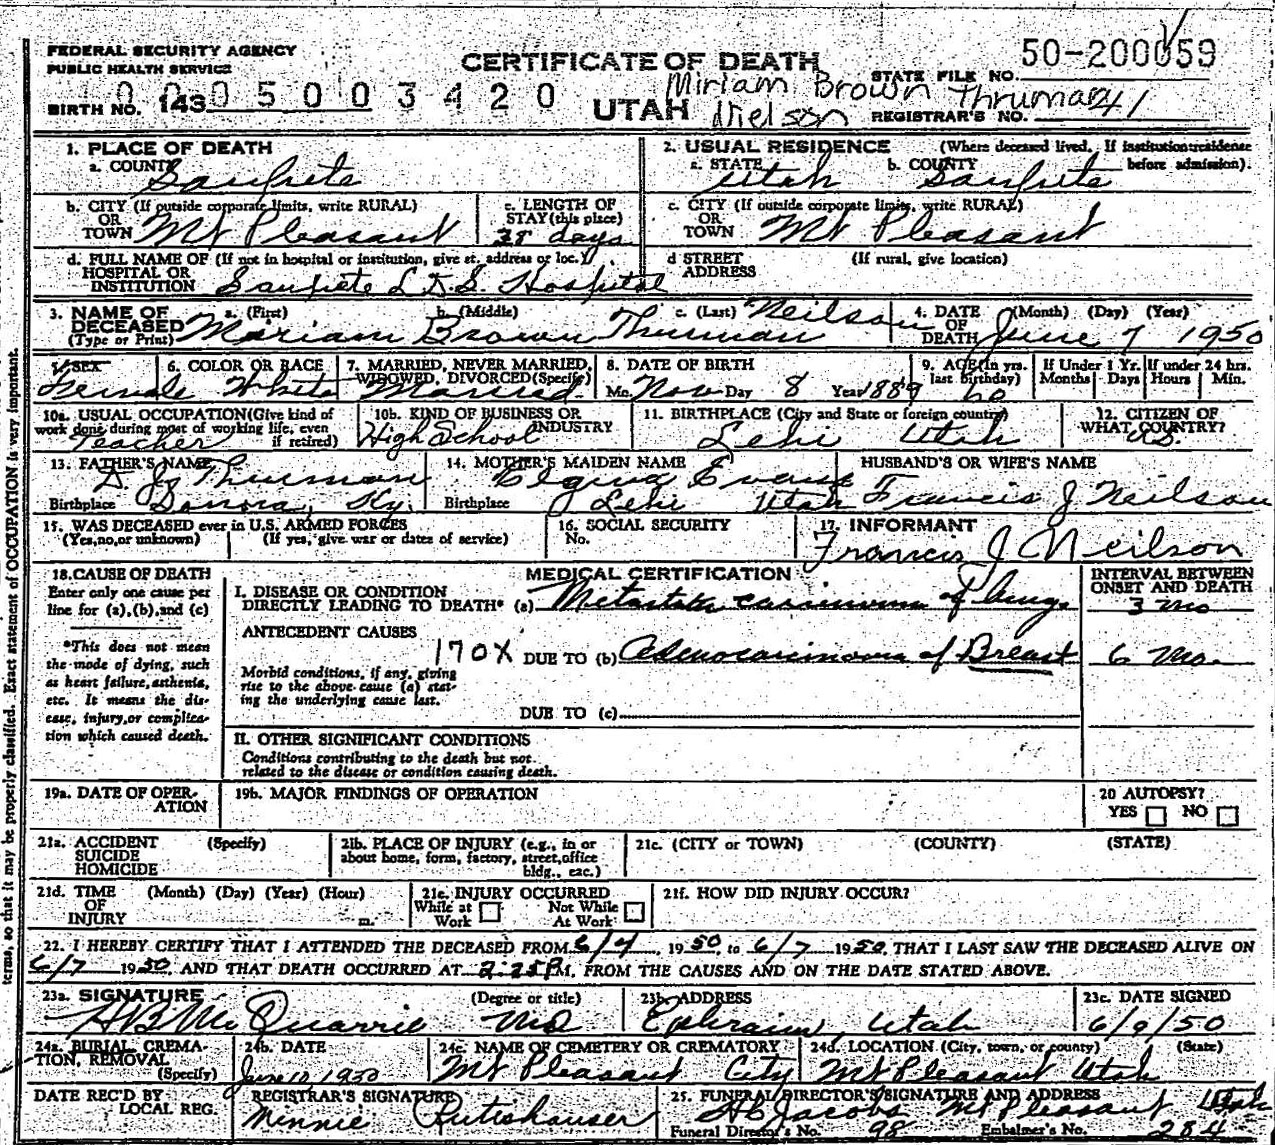 FEDERAL SECURITY AGENCY
PUBLIC HEALTH SERVICE
CERTIFICATE OF DEATH
UTAH
Miriam Brown Thruman
Nielson
STATE FILE NO. 50-200059
BIRTH NO. 143
0005003420
REGISTRAR'S NO. 41
1. PLACE OF DEATH
a. COUNTY Sanpete
2. USUAL RESIDENCE (Where deceased lived. If institution: residence before admission).
a. STATE Utah b. COUNTY Sanpete
b. CITY (If outside corporate limits, write RURAL) OR TOWN Mt Pleasant
c. LENGTH OF STAY (this place) 38 days
c. CITY (If outside corporate limits, write RURAL) OR TOWN Mt Pleasant
d. FULL NAME OF (If not in hospital or institution, give st. address or loc.) HOSPITAL OR INSTITUTION Sanpete L.D.S. Hospital
d STREET ADDRESS (If rural, give location)
3. NAME OF DECEASED (Type or Print) a. (First) b. (Middle) c. (Last)
Mariam Brown Thurman Neilson
4. DATE OF DEATH (Month) (Day) (Year) June 7 1950
5. SEX Female
6. COLOR OR RACE White
7. MARRIED, NEVER MARRIED, WIDOWED, DIVORCED (Specify) Married
8. DATE OF BIRTH Mo. Nov Day 8 Year 1889
9. AGE (In yrs. last birthday) 60
If Under 1 Yr. Months Days
If under 24 hrs. Hours Min.
10a. USUAL OCCUPATION (Give kind of work done during most of working life, even if retired) Teacher
10b. KIND OF BUSINESS OR INDUSTRY High School
11. BIRTHPLACE (City and State or foreign country) Lehi Utah
12. CITIZEN OF WHAT COUNTRY? U.S.
13. FATHER'S NAME D. J. Thurman
Birthplace Ky.
14. MOTHER'S MAIDEN NAME Evans
Birthplace Lehi Utah
HUSBAND'S OR WIFE'S NAME
Francis J Neilson
15. WAS DECEASED ever in U.S. ARMED FORCES
(Yes, no, or unknown) (If yes, give war or dates of service)
16. SOCIAL SECURITY No.
17. INFORMANT
Francis J Neilson
18. CAUSE OF DEATH
Enter only one cause per line for (a), (b), and (c)
*This does not mean the mode of dying, such as heart failure, asthenia, etc. It means the disease, injury, or complication which caused death.
MEDICAL CERTIFICATION
INTERVAL BETWEEN ONSET AND DEATH
I. DISEASE OR CONDITION DIRECTLY LEADING TO DEATH* (a) Metastatic carcinoma of lungs 3 mo
ANTECEDENT CAUSES
170X DUE TO (b) Adenocarcinoma of Breast 6 mo.
Morbid conditions, if any, giving rise to the above cause (a) stating the underlying cause last.
DUE TO (c)
II. OTHER SIGNIFICANT CONDITIONS
Conditions contributing to the death but not related to the disease or condition causing death.
19a. DATE OF OPERATION
19b. MAJOR FINDINGS OF OPERATION
20 AUTOPSY? YES NO
21a. ACCIDENT SUICIDE HOMICIDE (Specify)
21b. PLACE OF INJURY (e.g., in or about home, form, factory, street, office bldg., eac.)
21c. (CITY or TOWN) (COUNTY) (STATE)
21d. TIME OF INJURY (Month) (Day) (Year) (Hour) m.
21e. INJURY OCCURRED While at Work Not While At Work
21f. HOW DID INJURY OCCUR?
22. I HEREBY CERTIFY THAT I ATTENDED THE DECEASED FROM 6/4, 1950, to 6/7 1950, THAT I LAST SAW THE DECEASED ALIVE ON
6/7 1950, AND THAT DEATH OCCURRED AT 2:25P M. FROM THE CAUSES AND ON THE DATE STATED ABOVE.
23a. SIGNATURE (Degree or title)
McQuarrie MD
23b. ADDRESS
Ephraim, Utah
23c. DATE SIGNED
6/9/50
24a. BURIAL, CREMATION, REMOVAL (Specify)
24b. DATE June 10, 1950
24c. NAME OF CEMETERY OR CREMATORY Mt Pleasant City
24d. LOCATION (City, town, or county) (State) Mt Pleasant Utah
DATE REC'D BY LOCAL REG.
REGISTRAR'S SIGNATURE
Minnie Rutishauser
25. FUNERAL DIRECTOR'S SIGNATURE AND ADDRESS
Jacobs Mt Pleasant Utah
Funeral Director's No. 98 Embalmer's No. 284
terms, so that it may be properly classified. Exact statement of OCCUPATION is very important.